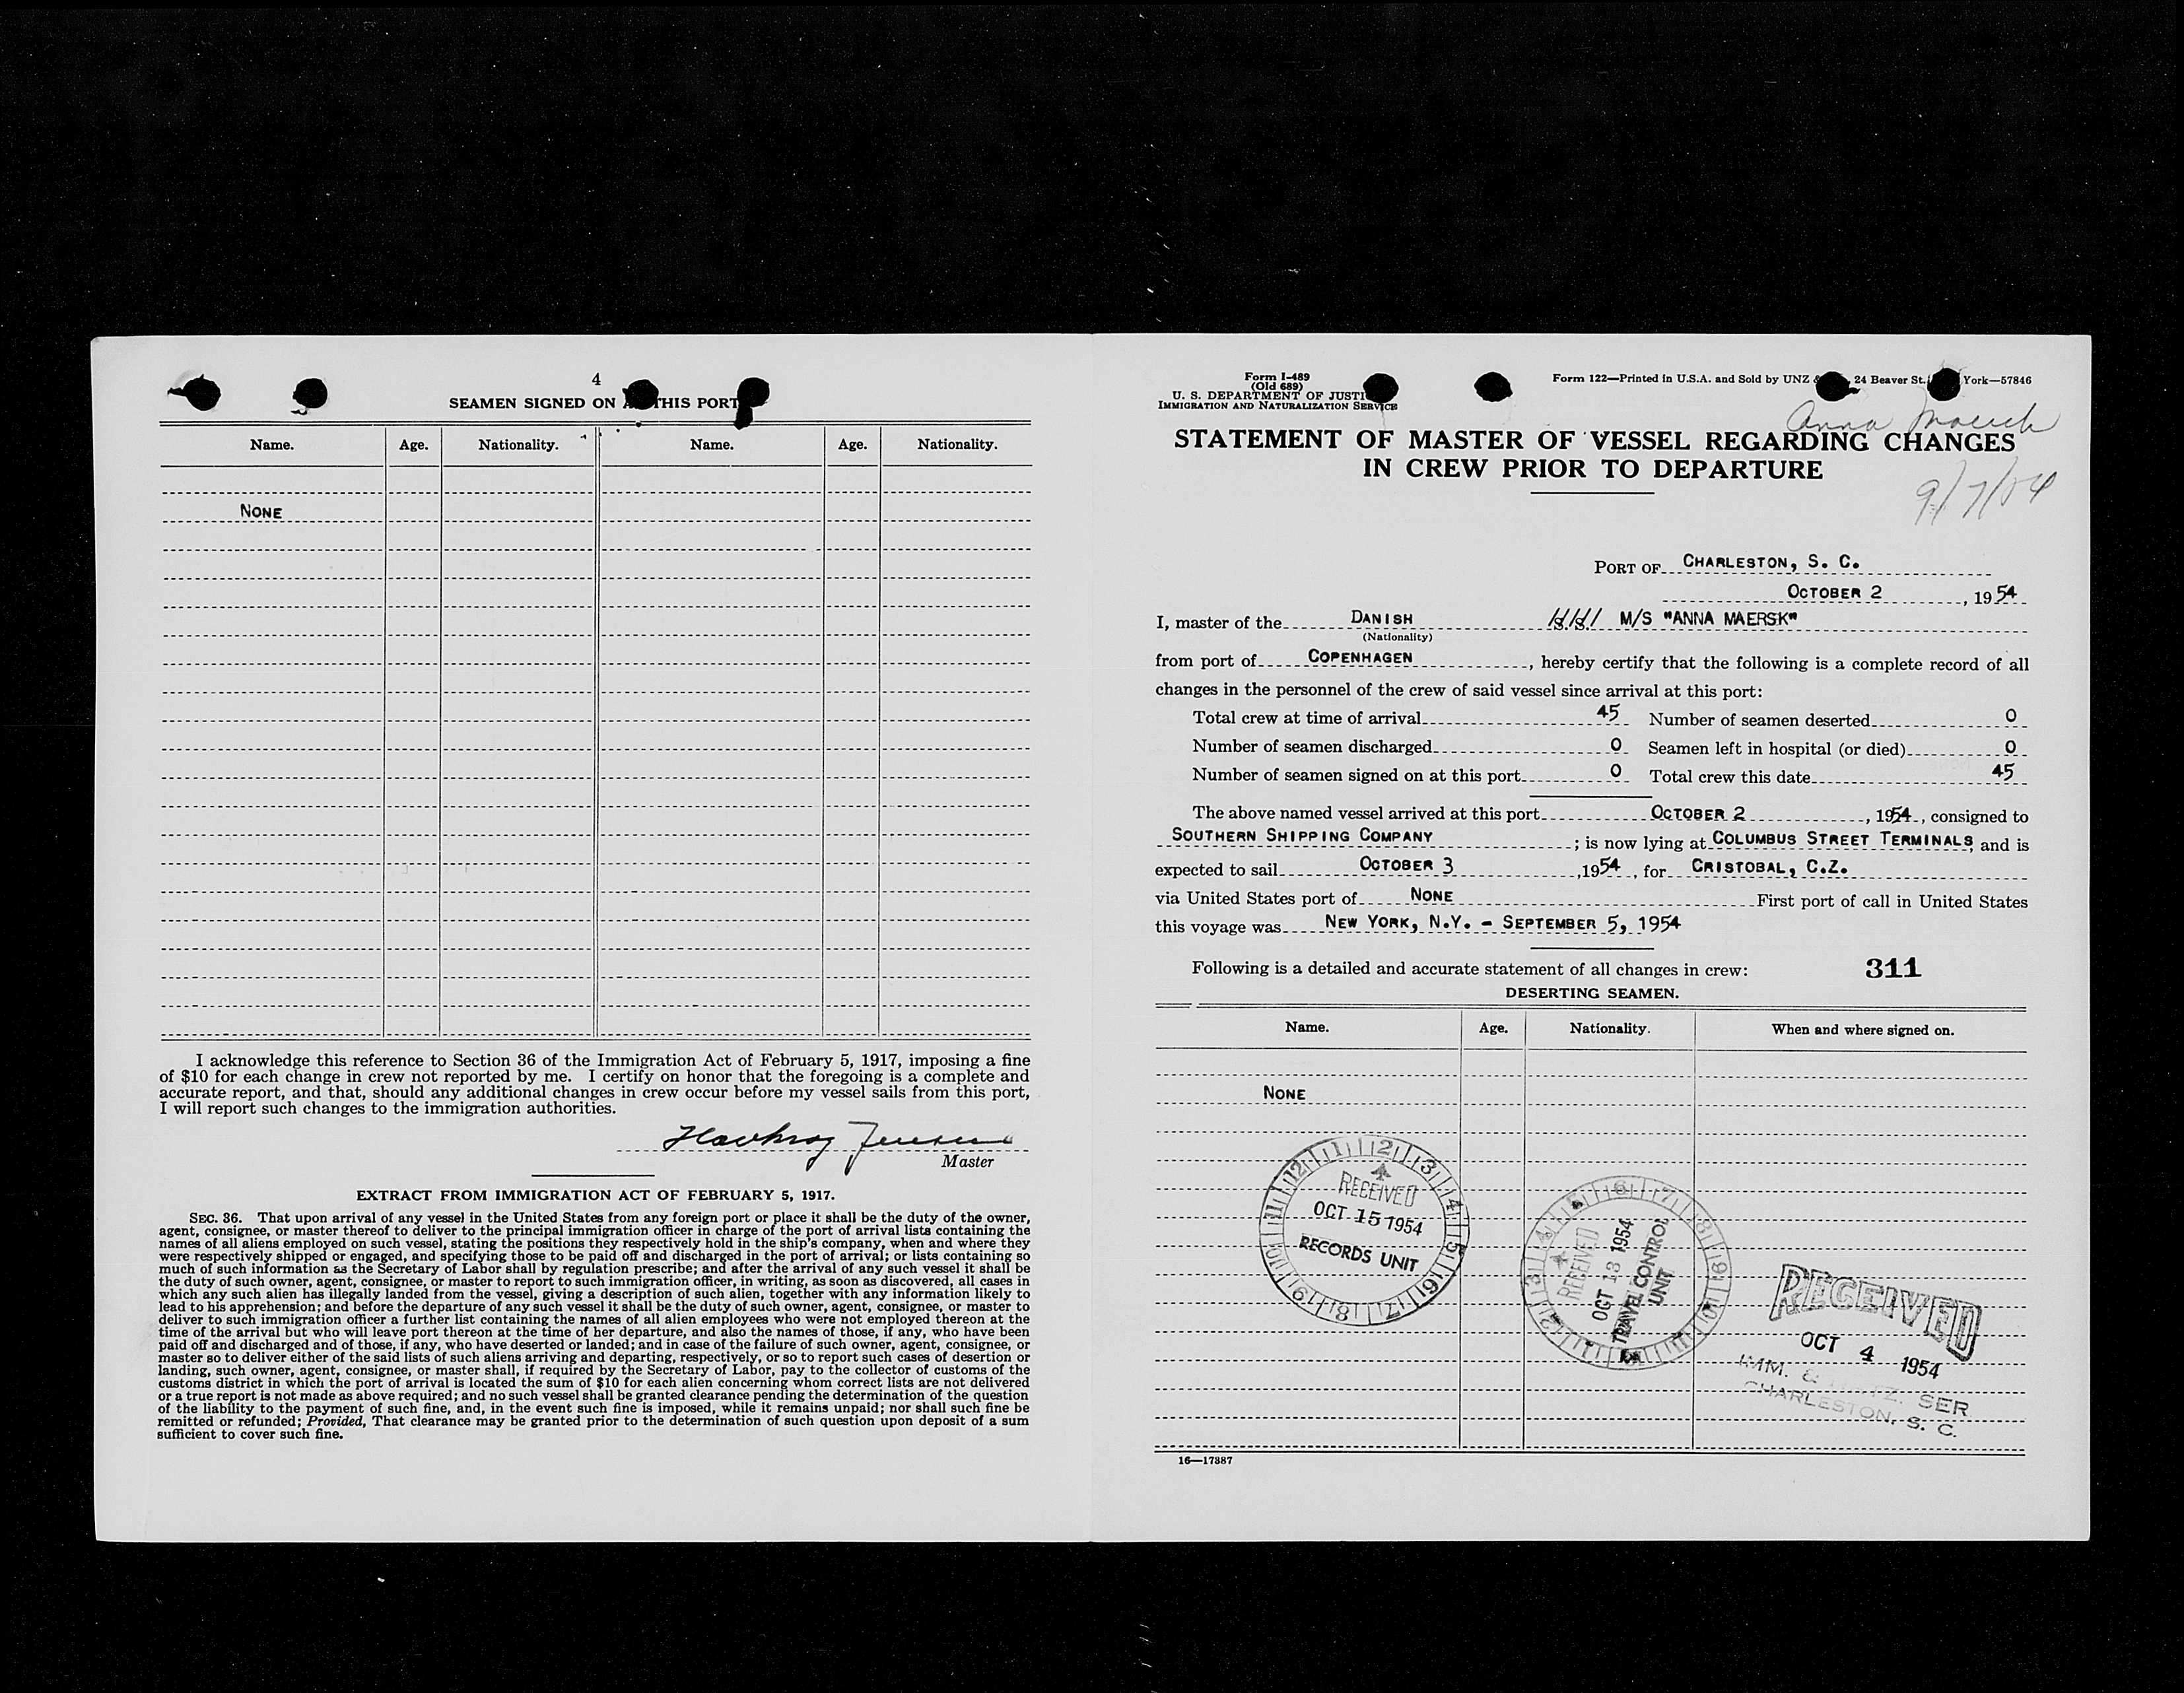 4
SEAMEN SIGNED ON THIS PORT
Name. Age. Nationality. Name. Age. Nationality.
NONE
I acknowledge this reference to Section 36 of the Immigration Act of February 5, 1917, imposing a fine
of $10 for each change in crew not reported by me. I certify on honor that the foregoing is a complete and
accurate report, and that, should any additional changes in crew occur before my vessel sails from this port,
I will report such changes to the immigration authorities.
Jensen
Master
EXTRACT FROM IMMIGRATION ACT OF FEBRUARY 5, 1917.
SEC. 36. That upon arrival of any vessel in the United States from any foreign port or place it shall be the duty of the owner,
agent, consignee, or master thereof to deliver to the principal immigration officer in charge of the port of arrival lists containing the
names of all aliens employed on such vessel, stating the positions they respectively hold in the ship's company, when and where they
were respectively shipped or engaged, and specifying those to be paid off and discharged in the port of arrival; or lists containing so
much of such information as the Secretary of Labor shall by regulation prescribe; and after the arrival of any such vessel it shall be
the duty of such owner, agent, consignee, or master to report to such immigration officer, in writing, as soon as discovered, all cases in
which any such alien has illegally landed from the vessel, giving a description of such alien, together with any information likely to
lead to his apprehension; and before the departure of any such vessel it shall be the duty of such owner, agent, consignee, or master to
deliver to such immigration officer a further list containing the names of all alien employees who were not employed thereon at the
time of the arrival but who will leave port thereon at the time of her departure, and also the names of those, if any, who have been
paid off and discharged and of those, if any, who have deserted or landed; and in case of the failure of such owner, agent, consignee, or
master so to deliver either of the said lists of such aliens arriving and departing, respectively, or so to report such cases of desertion or
landing, such owner, agent, consignee, or master shall, if required by the Secretary of Labor, pay to the collector of customs of the
customs district in which the port of arrival is located the sum of $10 for each alien concerning whom correct lists are not delivered
or a true report is not made as above required; and no such vessel shall be granted clearance pending the determination of the question
of the liability to the payment of such fine, and, in the event such fine is imposed, while it remains unpaid; nor shall such fine be
remitted or refunded; Provided, That clearance may be granted prior to the determination of such question upon deposit of a sum
sufficient to cover such fine.
Form I-489
(Old 689)
U. S. DEPARTMENT OF JUSTI
IMMIGRATION AND NATURALIZATION SERVICE
Form 122—Printed in U.S.A. and Sold by UNZ & 24 Beaver St. York—57846
Anna Maersk
STATEMENT OF MASTER OF VESSEL REGARDING CHANGES
IN CREW PRIOR TO DEPARTURE
9/7/54
PORT OF CHARLESTON, S. C.
OCTOBER 2, 1954
I, master of the DANISH M/S "ANNA MAERSK"
(Nationality)
from port of COPENHAGEN, hereby certify that the following is a complete record of all
changes in the personnel of the crew of said vessel since arrival at this port:
Total crew at time of arrival 45 Number of seamen deserted 0
Number of seamen discharged 0 Seamen left in hospital (or died) 0
Number of seamen signed on at this port 0 Total crew this date 45
The above named vessel arrived at this port OCTOBER 2, 1954, consigned to
SOUTHERN SHIPPING COMPANY; is now lying at COLUMBUS STREET TERMINALS, and is
expected to sail OCTOBER 3, 1954, for CRISTOBAL, C.Z.
via United States port of NONE First port of call in United States
this voyage was NEW YORK, N.Y. - SEPTEMBER 5, 1954
Following is a detailed and accurate statement of all changes in crew: 311
DESERTING SEAMEN.
Name. Age. Nationality. When and where signed on.
NONE
12 1 2 3 4 5 6 7 8 9 10 11
RECEIVED
OCT 15 1954
RECORDS UNIT
RECEIVED
OCT 13 1954
TRAVEL CONTROL
UNIT
RECEIVED
OCT 4 1954
IMM. & SER
CHARLESTON, S. C.
16—17387